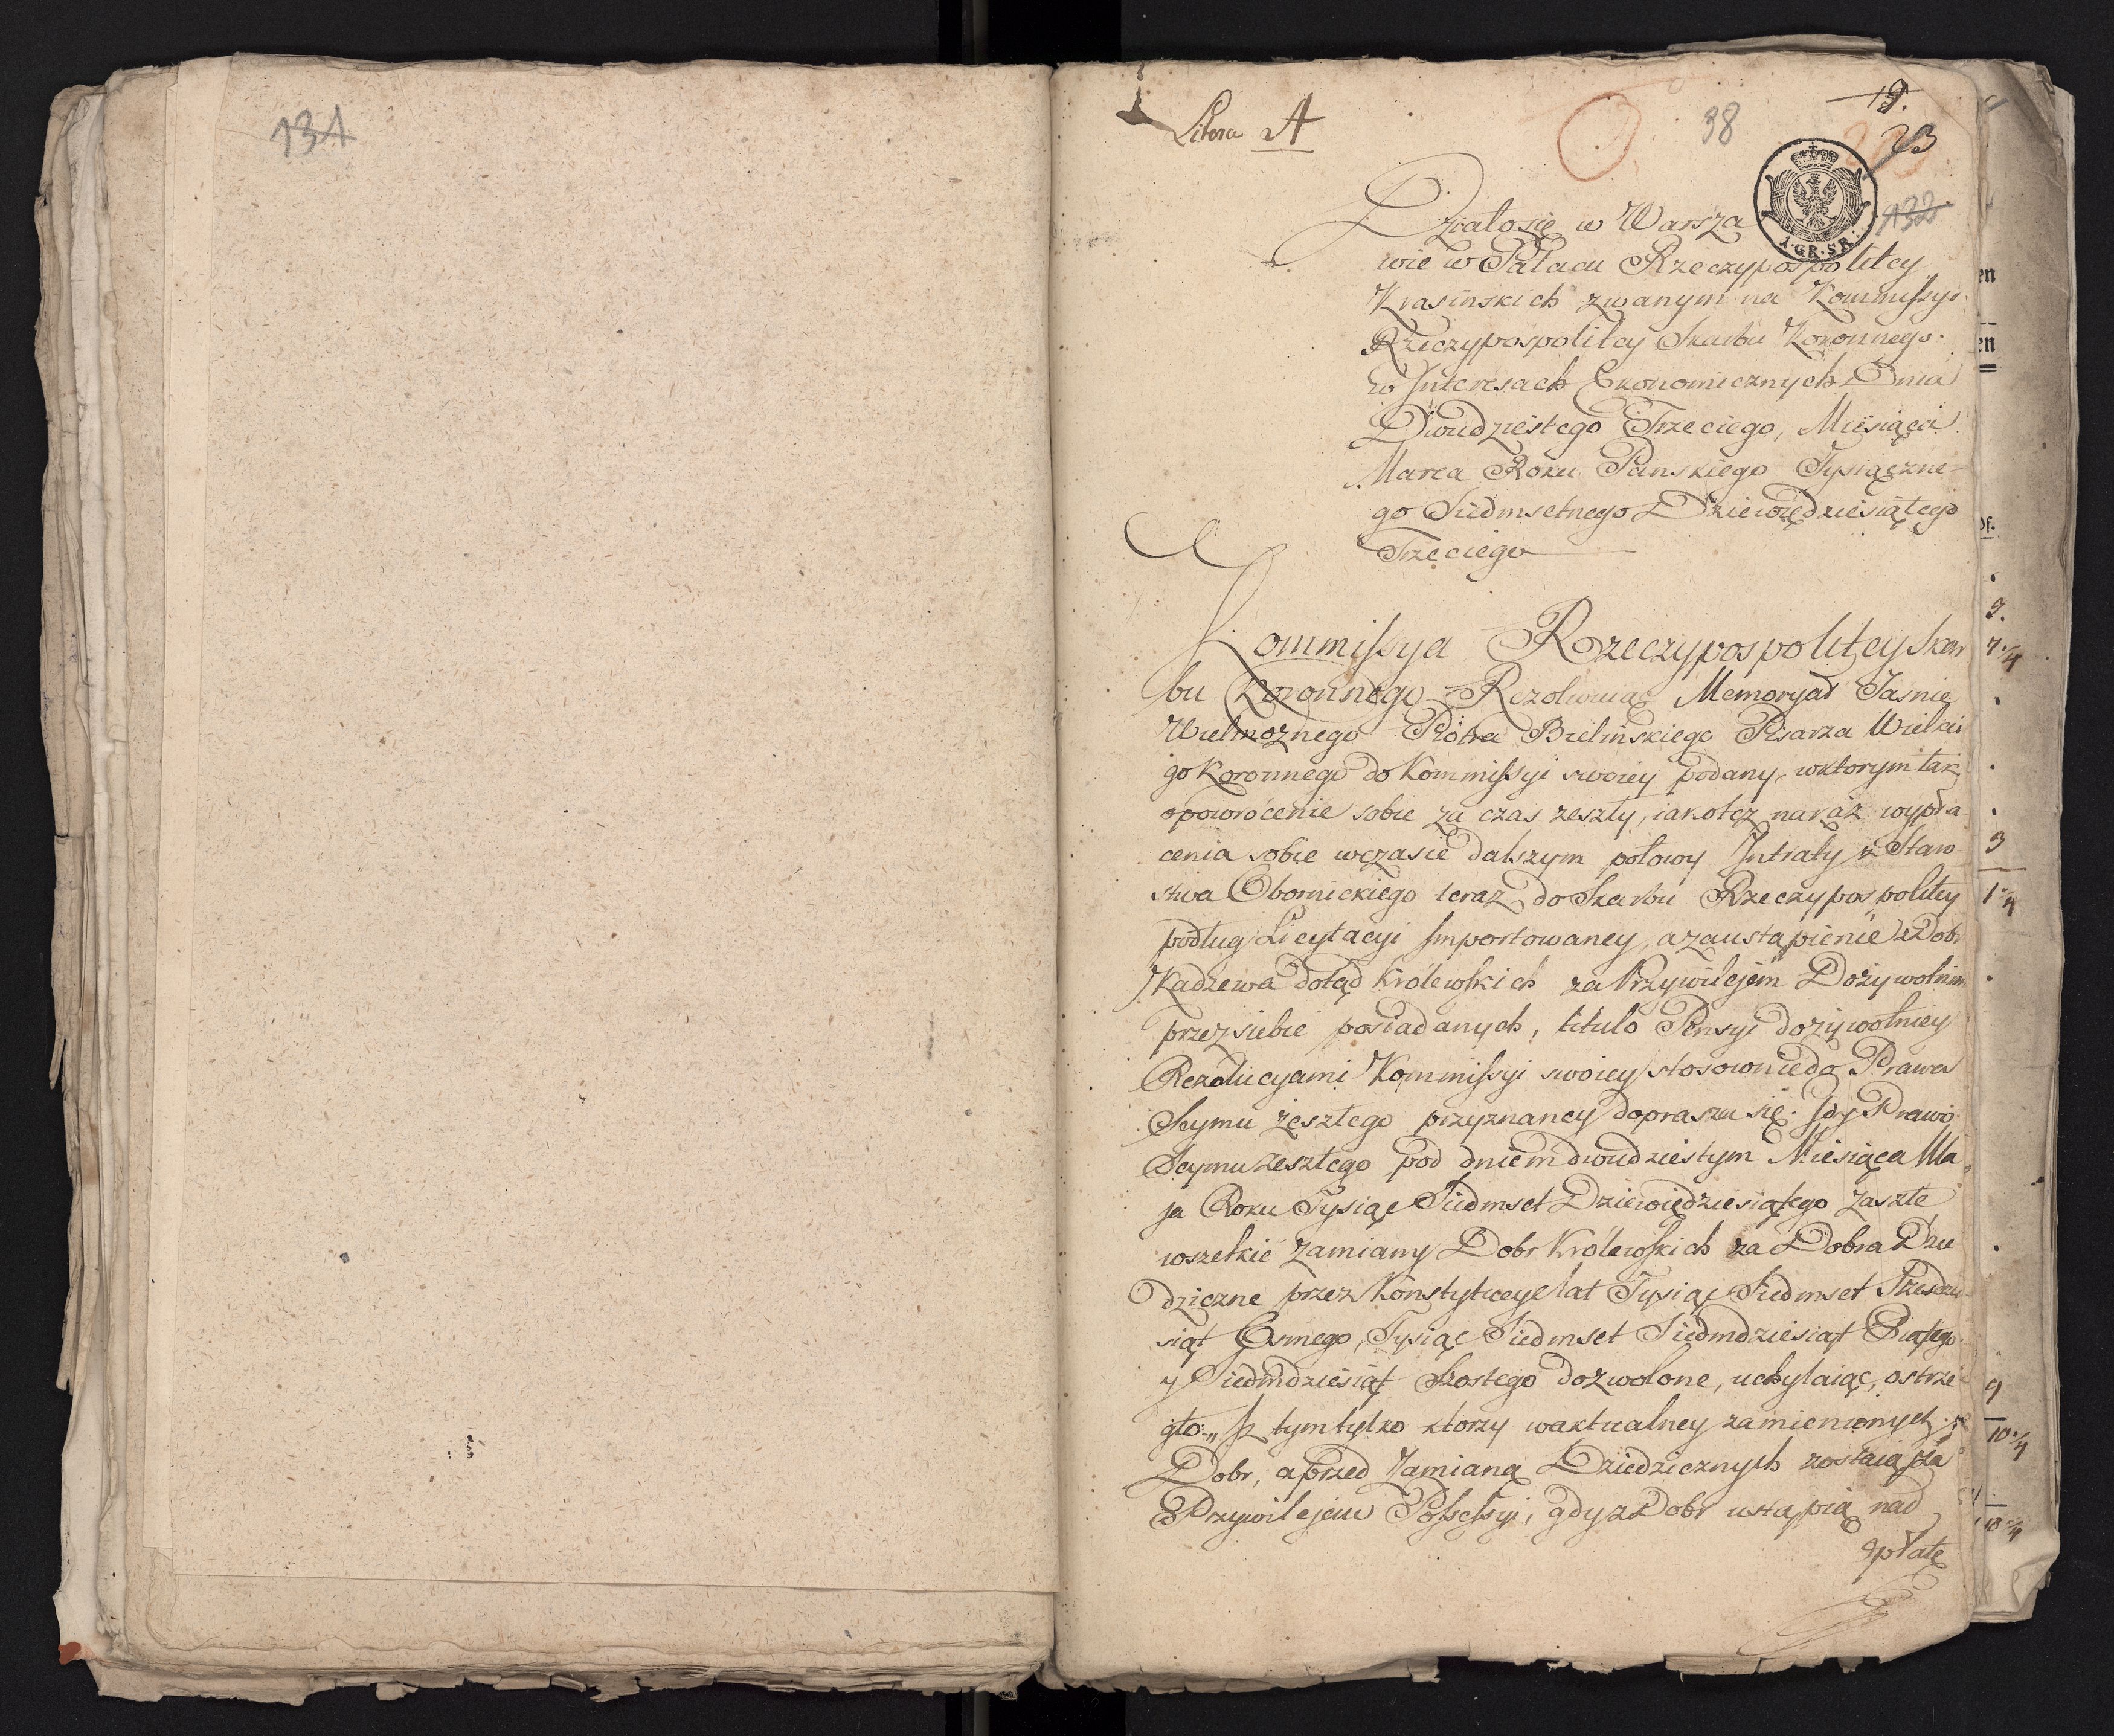 131
Litera A
38
19.
23
132
1. GR. S R.
Działo się w Warsza
wie w Pałacu Rzeczypospolitey
Krasinskich zwanym na Kommissyi
Rzeczypospolitey Skarbu Koronnego
w Interesach Ekonomicznych Dnia
Dwudziestego Trzeciego, Miesiąca
Marca Roku Panskiego Tysiączne-
go Siedmsetnego Dziewiędziesiątego
Trzeciego
Kommissya Rzeczypospolitey Skar
bu Koronnego Rezolwuiąc Memoryał Jasnie
Wielmoznego Piotra Bielinskiego Pisarza Wielkie
go Koronnego do Kommissyi swoiey podany, w ktorym tak
o powrocenie sobie za czas zeszły, iako tez naraz wypła
cenia sobie w czasie dalszym połowy Intraty z Staro
stwa Obornickiego teraz do Skarbu Rzeczypospolitey
podług Licytacyi importowaney, a za ustąpienie z Dobr
Kadzewa dotąd Krolewskich za Przywilejem Dozywotnim
przez siebie posiadanych, titulo Pensyi dozywotniey
Rezolucyami Kommissyi swoiey stosownie do Prawa
Seymu zeszłego przyznaney doprasza się. Gdy Prawo
Seymu zeszłego pod dniem dwudziestym Miesiąca Ma
ja Roku Tysiąc Siedmset Dziewiędziesiątego zaszłe
wszelkie zamiany Dobr Krolewskich za Dobra Dzie
dziczne przez Konstytucye lat Tysiąc Siedmset Szesdzie
siąt Osmego, Tysiąc Siedmset Siedmdziesiąt Piątego
y Siedmdziesiąt Szostego dozwolone, uchylaiąc, ostrze
gło: „Iz tym tylko ktorzy w aktualney zamienionych
Dobr, a przed Zamianą Dziedzicznych zostaią za
Przywilejem Possessyi, gdy z Dobr ustąpią nad
grłatę